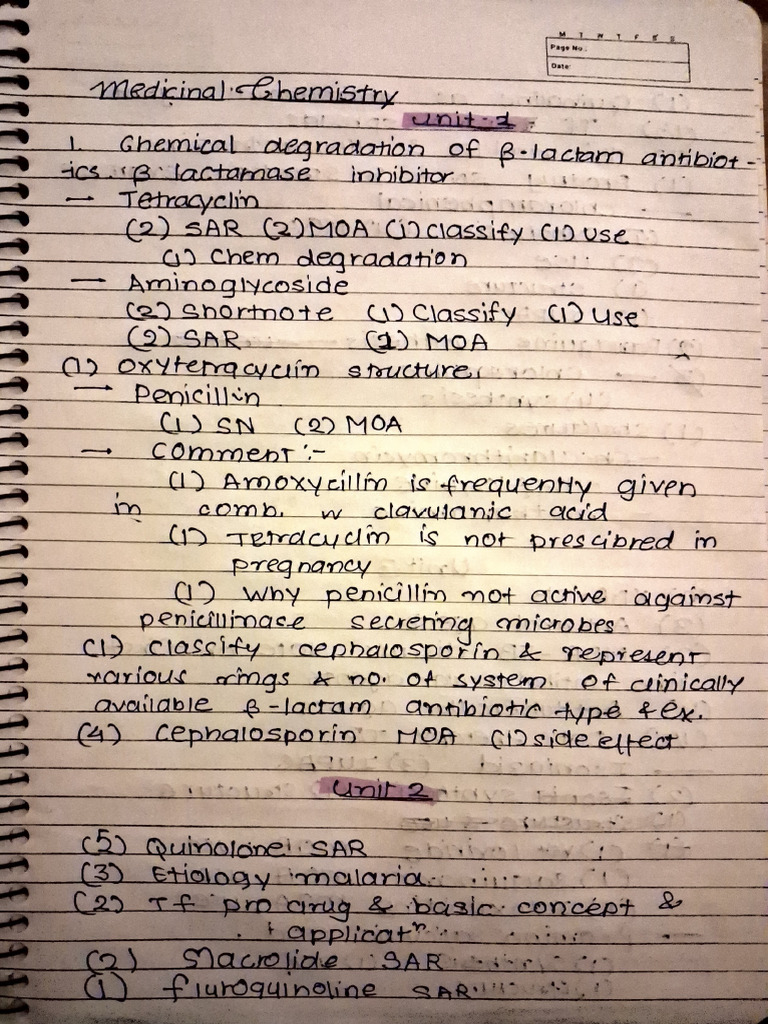 M T W T F S S
Page No.:
Date:
Medicinal Chemistry
Unit-1
1. Chemical degradation of β-lactam antibiot-
-ics. β lactamase inhibitor
→ Tetracyclin
(2) SAR (2) MOA (1) classify (1) use
(1) Chem degradation
→ Aminoglycoside
(2) Shortnote (1) Classify (1) use
(2) SAR (1) MOA
(1) oxytetracyclin structure
→ Penicillin
(1) SN (2) MOA
→ Comment :-
(1) Amoxycillin is frequently given
in comb. w clavulanic acid
(1) Tetracyclin is not prescibred in
pregnancy
(1) Why penicillin not active against
penicillinase secreting microbes.
(1) classify cephalosporin & represent
various rings & no. of system of clinically
available β-lactam antibiotic type & ex.
(4) Cephalosporin MOA (1) side effect
Unit 2
(5) Quinolone SAR
(3) Etiology malaria
(2) Tf pro drug & basic concept &
applicatⁿ
(2) Macrolide SAR
(1) fluroquinoline SAR